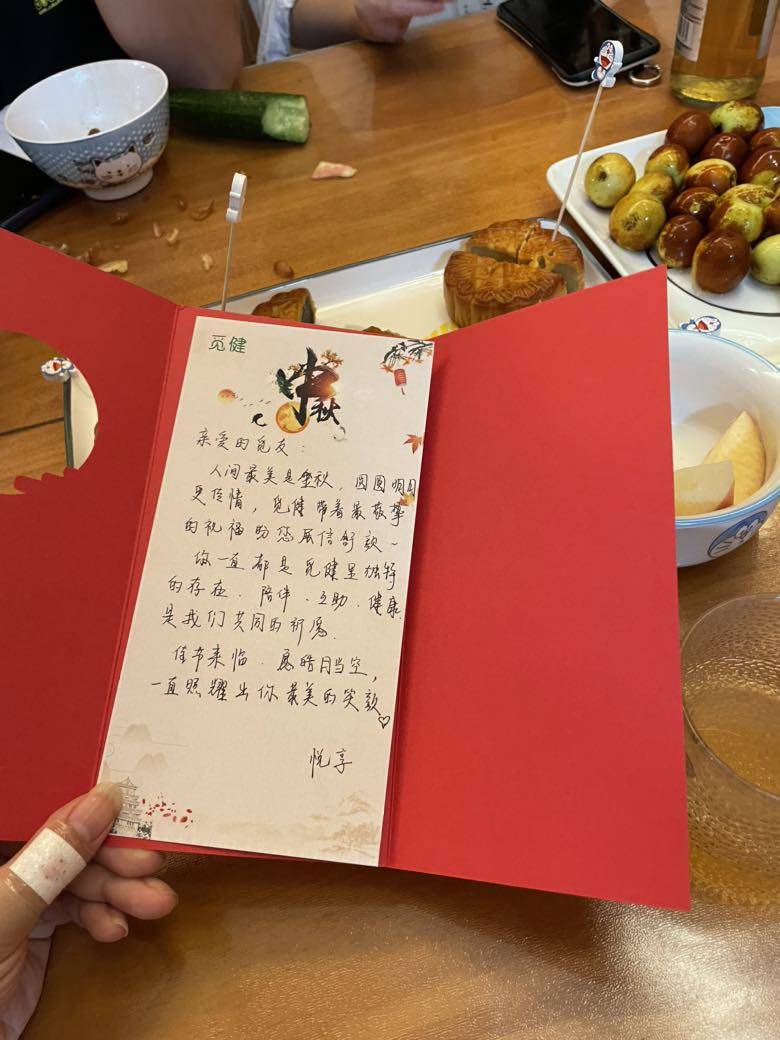 觅健
中秋
亲爱的觅友：
人间最美是金秋，圆圆明月
更情，觅健带着最挚
的祝福助您展信舒颜~
你一直都是觅健里独特
的存在．陪伴、互助、健康
是我们共同的祈愿．
佳节来临．愿皓月当空，
一直照耀出你最美的笑颜♡
悦享